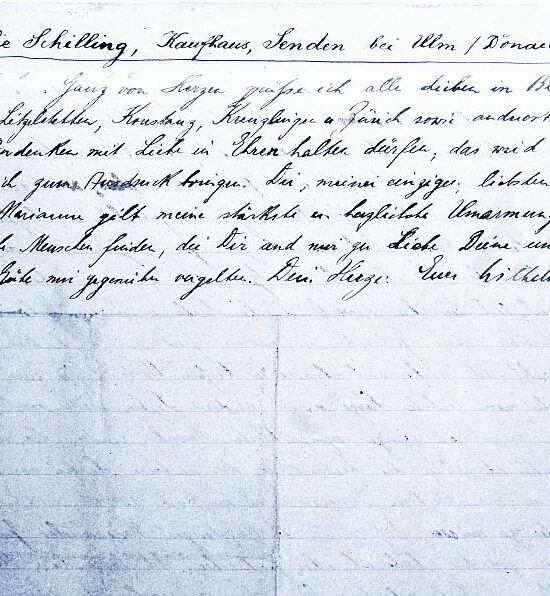 ie Schilling, Kaufhaus, Senden bei Ulm / Donau
Ganz von Herzen grüsse ich alle lieben in B
Litzelstetten, Konstanz, Kreuzlingen u Zürich sowie andernort
ndenken mit Liebe in Ehren halten dürfen, das wird
ich zum Ausdruck bringen. Dir, meiner einzigen, liebsten
Marianne gilt meine stärkste u herzlichste Umarmung
Menschen finden, die Dir und mir zu Liebe Deine un
Güte mir gegenüber vergelten. Dein Herze. Euer Wilhel